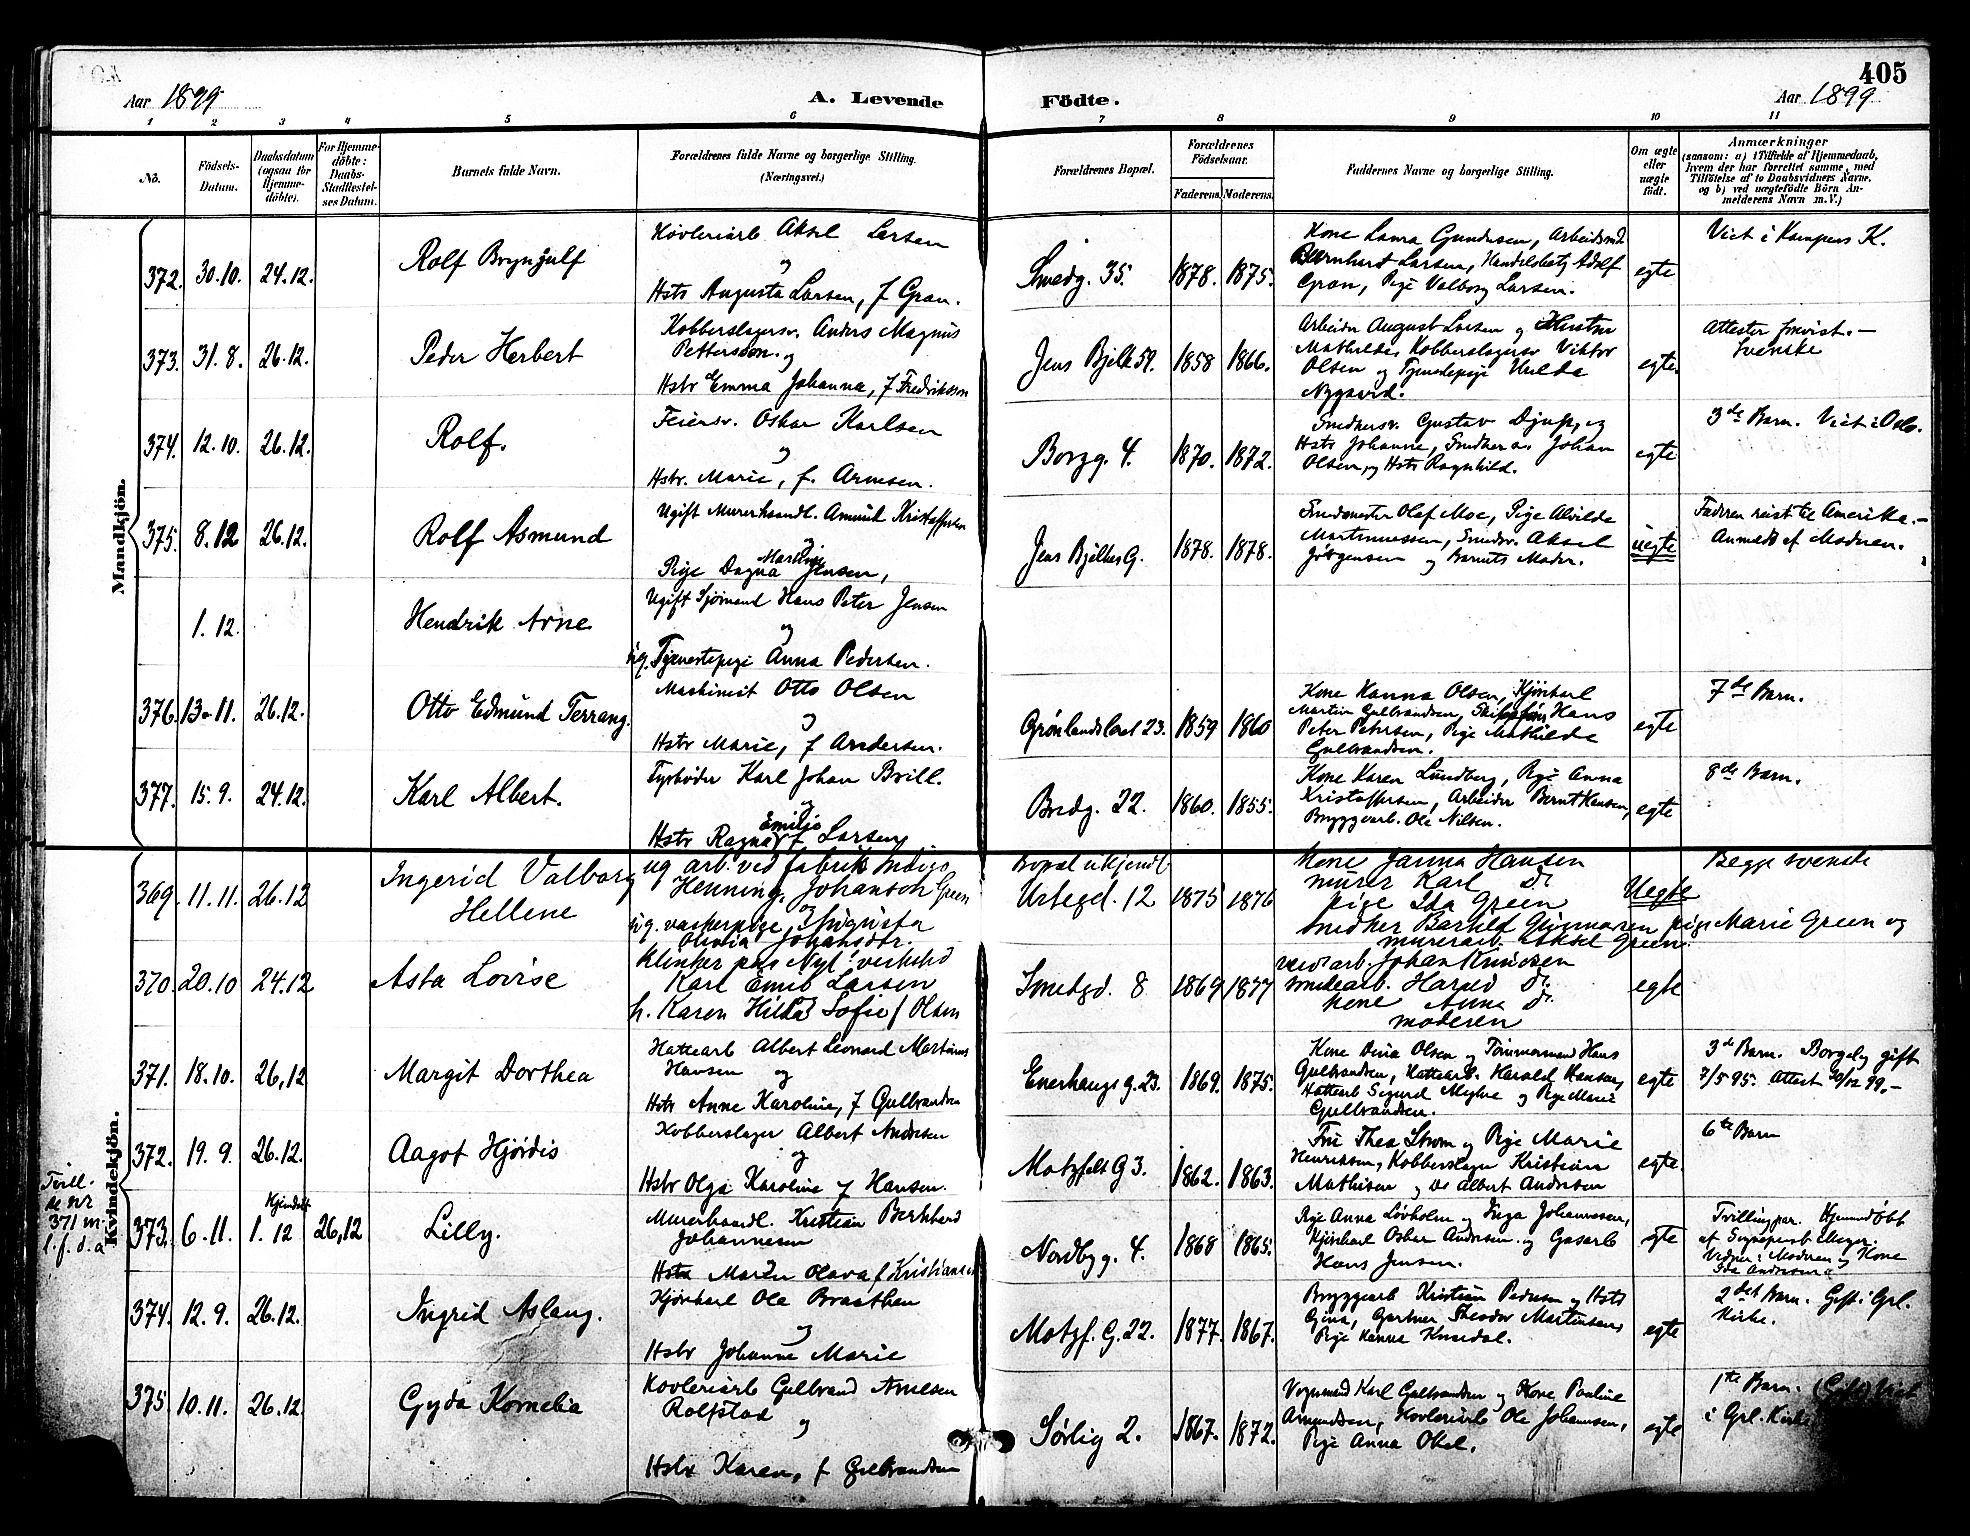 405
Aar 1899
A. Levende Födte.
Aar 1899
1 2 3 4 5 6 7 8 9 10 11
No.
Födsels-
Datum.
Daabsdatum
(ogsaa for
Hjemme-
döbte).
For Hjemme-
döbte:
Daabs-
Stadfæstel-
ses Datum.
Barnets fulde Navn.
Forældrenes fulde Navne og borgerlige Stilling.
(Næringsvei.)
Forældrenes Bopæl.
Forældrenes
Födselsaar.
Faderens. Moderens.
Faddernes Navne og borgerlige Stilling.
Om ægte
eller
uægte
födt.
Anmærkninger
(saasom: a) i Tilfælde af Hjemmedaab,
hvem der har forrettet samme, med
Tilföielse af to Daabsvidners Navne,
og b) ved uægtefödte Börn An-
melderens Navn m. V.)
Mandkjön.
372. 30.10. 24.12.
Rolf Brynjulf
Høvleriarb Aksel Larsen
og
Hstr Augusta Larsen, f Gran.
Smedg. 35. 1878. 1875.
Kone Laura Gundersen, Arbeidsmd
Bernhard Larsen, Handelsbetj Adolf
Gran, Pige Valborg Larsen.
egte
Viet i Kampens K.
373. 31.8. 26.12.
Peder Herbert
Kobberslagersv. Anders Magnus
Pettersson. og
Hstr Emma Johanna, f Fredriksson
Jens Bjelk 59. 1858 1866.
Arbeider August Larsen og Hustru
Mathilde, Kobberslagersv Viktor
Olsen og Tjenestepige Hulda
Nygaard.
egte.
Attester forevist. —
Svenske
374. 12.10. 26.12.
Rolf.
Feiersv. Oskar Karlsen
og
Hstr. Marie, f. Arnesen.
Borgg. 4. 1870. 1872.
Snedkersv. Gustav Djup, og
Hstr Johanne, Snedkersv. Johan
Olsen, og Hstr Ragnhild.
egte
3de Barn. Viet i Oslo.
375. 8.12 26.12.
Rolf Asmund
Ugift Murerhaandl. Amund Kristoffersen
og
Pige Dagna Mathilde Jensen,
Jens Bjelkes G. 1878. 1878.
Smedmester Olaf Moe, Pige Alvilde
Martinussen, Smedsv. Aksel
Jörgensen og Barnets Moder.
uegte
Faderen reist til Amerika. —
Anmeldt af Moderen.
1.12.
Hendrik Arne
Ugift Sjømand Hans Peter Jensen
og
ug. Tjenestepige Anna Pedersen.
376. 13-11. 26.12.
Otto Edmund Terrang.
Maskinist Otto Olsen
og
Hstr Marie, f Andersen.
Grønlandsleret 23. 1859 1860
Kone Hanna Olsen, Kjørekarl
Martin Gulbrandsen, Hans
Peter Petersen, Pige Mathilde
Gulbrandsen.
egte
7de Barn.
377. 15.9. 24.12.
Karl Albert.
Fyrbøder Karl Johan Brill.
og
Hstr Ragna Emilie f Larsen
Bredg. 22. 1860. 1855.
Kone Karen Lundberg, Pige Anna
Kristoffersen, Arbeider Bernt Hansen,
Bryggearb. Ole Nilsen.
egte
8de Barn.
Kvindekjön.
369. 11.11. 26.12
Ingerid Valborg
Hellene
ug arb. ved fabrik
Henning, Johanson Green
og
ug. vaskerpige Augusta
Olivia Johansdtr.
Bopæl ukjendt
Urtegd. 12 1875 1876
kone Janna Hansen
murer Karl Do
pige Ida Green
snedker Bartilf Gunnarsen pige Marie Green og
murerarb. Aksel Green.
Uegte
Begge svenske
370. 20.10 24.12
Asta Lovise
Karl Emil Larsen
h. Karen Hilda Sofie f Olsen
Smedgd. 8 1869 1877
arb. Johan Knudsen
smedearb. Harald Do
kone Anna Do
moderen
egte
371. 18.10. 26,12
Margit Dorthea
Hattearb Albert Leonard Martinus
Hansen og
Hstr Anne Karoline, f Gulbrandsen
Enerhaugs g. 23. 1869. 1875.
Kone Dina Olsen og Tømmermand Hans
Gulbrandsen, Hattearb. Harald Hansen,
Hattearb Sigurd Myhre og Pige Marie
Gulbrandsen.
egte
3de Barn. Borgelig gift
7/5 95. Attest 30/12 99. —
372. 19.9. 26.12.
Aagot Hjørdis
Kobberslager Albert Andersen
og
Hstr Olga Karoline f Hansen.
Motzfelt G 3. 1862. 1863.
Fru Thea Strøm og Pige Marie
Henriksen, Kobberslager Kristian
Mathisen og Do Albert Andersen
egte.
6te Barn
Tvill.
se nr
371 m.
l. f. d. a
373. 6.11. Kjendelse 1.12 26,12
Lilly.
Murerhaandl. Kristian Bernhard
Johannesen
Hstr Maren Olava f Kristiansen
Nordbyg. 4. 1868 1865.
Pige Anna Løvholm og Inga Johannesen,
Kjørekarl Oskar Andersen. og Gasarb
Hans Jensen.
egte
Tvillingpar. Hjemmedøbt
af Sogneprest Meyer.
Vidner: Moderen og Kone
Ida Andersen
374. 12.9. 26.12.
Ingrid Aslaug.
Kjørekarl Ole Braathen
og
Hstr Johanne Marie
Motzf. G. 22. 1877. 1867.
Bryggearb Kristian Pedersen og Hstr
Gina, Gartner Theodor Martinsen,
Pige Hanna Knardal.
egte
2det Barn. Gift i Grl.
Kirke.
375 10.11. 26.12.
Gyda Kornelia
Høvleriarb Gulbrand Arnesen
Rolfstad og
Hstr Karen, f Gulbrandsen
Sørlig 2. 1867. 1872.
Vognmand Karl Gulbrandsen og Kone Pauline
Amundsen, Høvleriarb Ole Johannesen,
Pige Anna Okel.
egte
1te Barn. (Gift) Viet
i Grl. Kirke